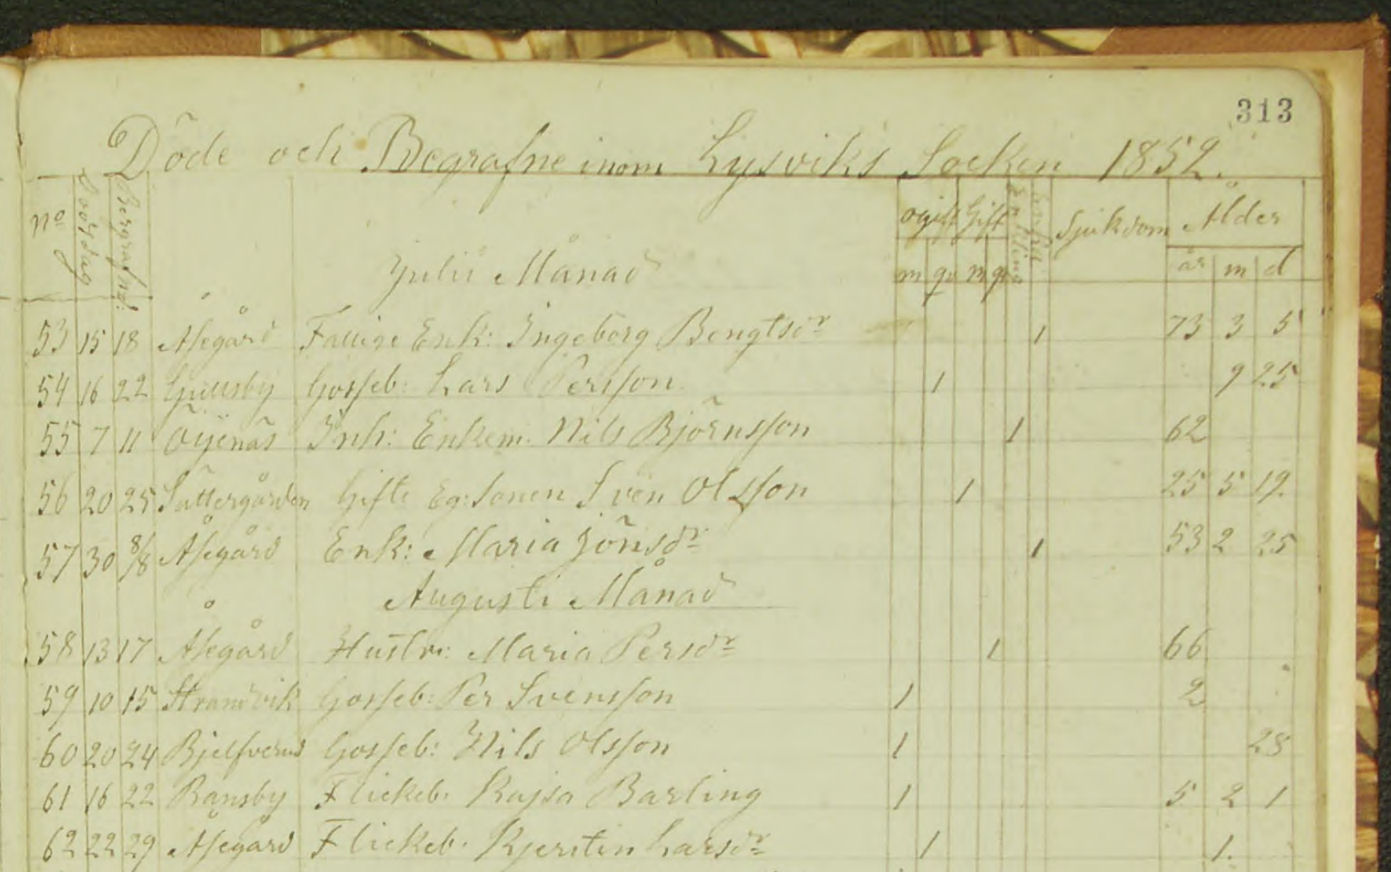 313
Döde och Begrafne inom Lysviks Socken 1852.
No Dödsdag Begrafnd: ogift Gift Enkling Enka Sjukdom Ålder
Julii Månad m qv m qv år m d
53 15 18 Åsegård Fattige Enk: Ingeborg Bengtsdr 1 73 3 5
54 16 22 Gosseb: Lars Persson 1 9 25
55 7 11 Öijenäs Inh: Enkem. Nils Björnsson 1 62
56 20 25 Sättergården Gifte Eg: Sonen Sven Olsson 1 25 5 19
57 30 8/8 Åsegård Enk: Maria Jönsdr 1 53 2 25
Augusti Månad
58 13 17 Åsegård Hustru: Maria Persdr 1 66
59 10 15 Strandvik Gosseb: Per Svensson 1 2
60 20 24 Bjelfverud Gosseb: Nils Olsson 1 28
61 16 22 Ransby Flickeb: Kajsa Barling 1 5 2 1
62 22 29 Åsegård Flickeb. Kjerstin Larsdr 1 1.